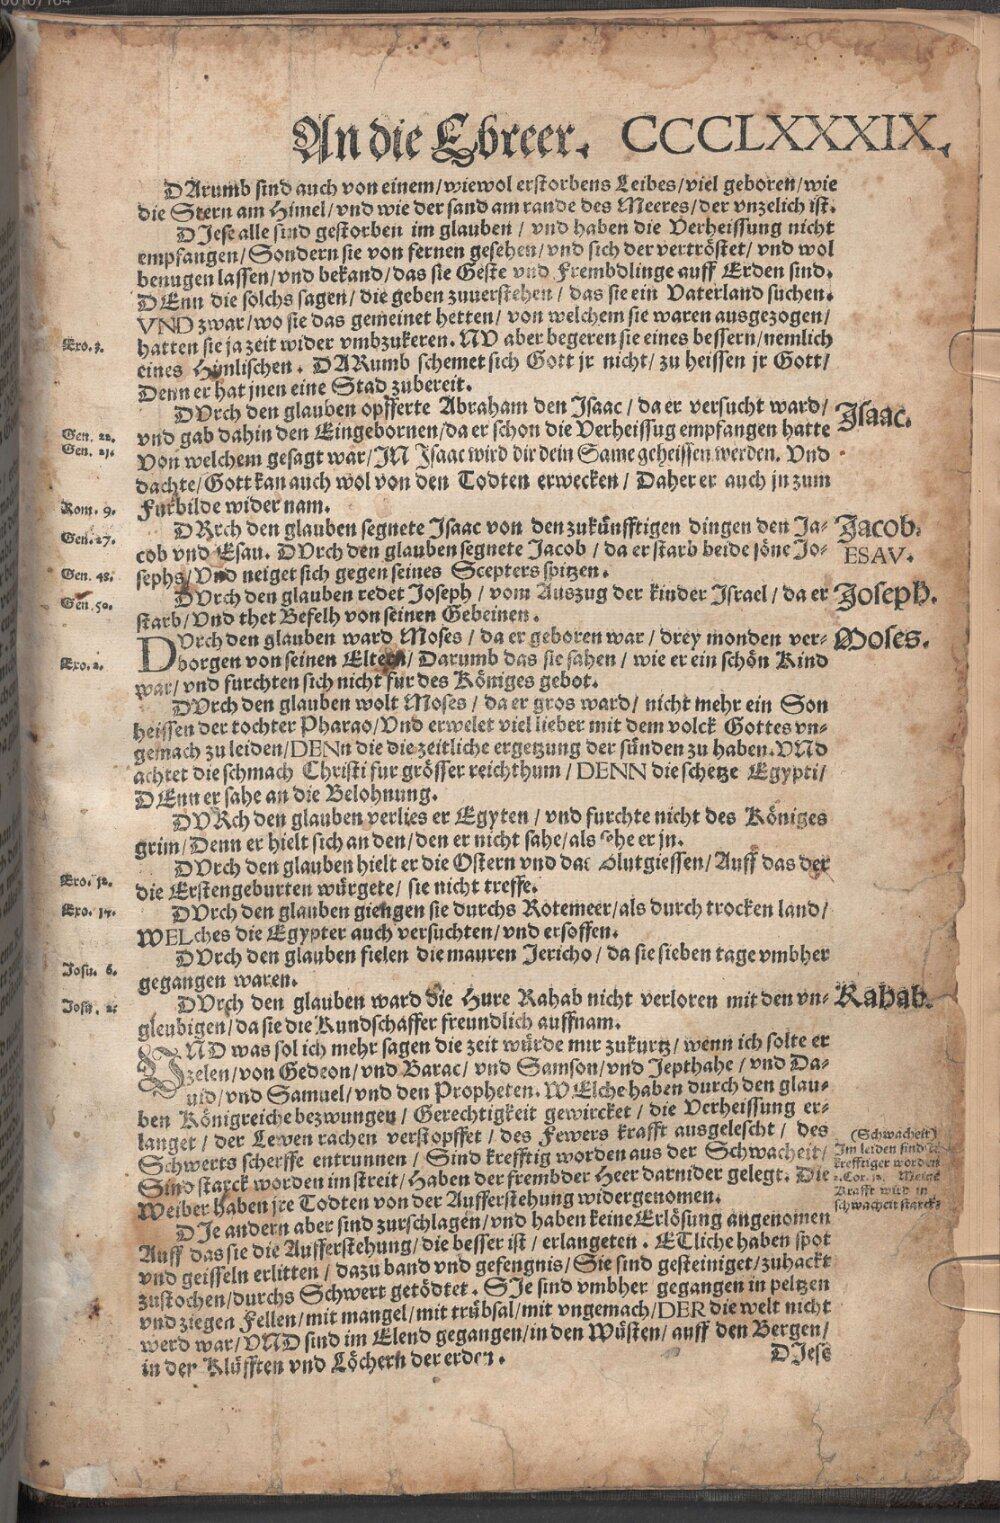 An die Ebreer. CCCCLXXXIX.
DArumb sind auch von einem/wiewol erstorbens Leibes/viel geboren/wie
die Stern am Himel/vnd wie der sand am rande des Meeres/der vnzelich ist.
DJese alle sind gestorben im glauben / vnd haben die Verheissung nicht
empfangen/Sondern sie von fernen gesehen/vnd sich der vertröstet/vnd wol
benugen lassen/vnd bekand/das sie Geste vnd Frembdlinge auff Erden sind.
DEnn die solchs sagen/die geben zuuerstehen/das sie ein Vaterland suchen.
VND zwar/wo sie das gemeinet hetten/von welchem sie waren ausgezogen/
Exo.3.
hatten sie ja zeit wider vmbzukeren. NV aber begeren sie eines bessern/nemlich
eines Hymlischen. DARumb schemet sich Gott jr nicht/zu heissen jr Gott/
Denn er hat jnen eine Stad zubereit.
DVrch den glauben opfferte Abraham den Isaac/da er versucht ward/
Isaac.
Gen. 22.
vnd gab dahin den Eingebornen/da er schon die Verheissug empfangen hatte
Gen. 21.
Von welchem gesagt war/JN Isaac wird dir dein Same geheissen werden. Vnd
dachte/Gott kan auch wol von den Todten erwecken/Daher er auch jn zum
Rom. 9.
Furbilde wider nam.
DRrch den glauben segnete Isaac von den zukünfftigen dingen den Ja-
Jacob.
Gen.27.
cob vnd Esau. DVrch den glauben segnete Jacob/da er starb beide söne Jo-
ESAV.
Gen. 48.
sephs/Vnd neiget sich gegen seines Scepters spitzen.
DVrch den glauben redet Joseph/vom Auszug der kinder Israel/da er
Joseph.
Gen.50.
starb/Vnd thet Befelh von seinen Gebeinen.
DVrch den glauben ward Moses/da er geboren war/drey monden ver-
Moses.
Exo.2.
borgen von seinen Eltern/Darumb das sie sahen/wie er ein schön Kind
war/vnd furchten sich nicht fur des Königes gebot.
DVrch den glauben wolt Moses/da er gros ward/nicht mehr ein Son
heissen der tochter Pharao/Vnd erwelet viel lieber mit dem volck Gottes vn-
gemach zu leiden/DENn die die zeitliche ergetzung der sünden zu haben.VND
achtet die schmach Christi fur grösser reichthum/DENN die schetze Egypti/
DEnn er sahe an die Belohnung.
DVRch den glauben verlies er Egyten/vnd furchte nicht des Königes
grim/Denn er hielt sich an den/den er nicht sahe/als sehe er jn.
DVrch den glauben hielt er die Ostern vnd das Blutgiessen/Auff das der
Exo. 12.
die Erstengeburten würgete/sie nicht treffe.
Exo. 14.
DVrch den glauben giengen sie durchs Rotemeer/als durch trocken land/
WELches die Egypter auch versuchten/vnd ersoffen.
DVrch den glauben fielen die mauren Jericho/da sie sieben tage vmbher
Josu. 6.
gegangen waren.
DVrch den glauben ward die Hure Rahab nicht verloren mit den vn-
Rahab.
Josu. 2.
gleubigen/da sie die Kundschaffer freundlich auffnam.
VND was sol ich mehr sagen die zeit würde mir zukurtz/wenn ich solte er
zelen/von Gedeon/vnd Barac/vnd Samson/vnd Jepthahe/vnd Da-
uid/vnd Samuel/vnd den Propheten. WElche haben durch den glau-
ben Königreiche bezwungen/Gerechtigkeit gewircket/die Verheissung er-
langet/der Lewen rachen verstopffet/des Fewers krafft ausgelescht/des
Schwerts scherffe entrunnen/Sind krefftig worden aus der Schwacheit/
Sind starck worden im streit/Haben der frembder Heer darnider gelegt. Die
Weiber haben jre Todten von der Aufferstehung widergenomen.
(Schwacheit)
Im leiden sind sie
krefftiger worden
2.Cor.12. Meine
Krafft wird in
schwacheit starck.
DJe andern aber sind zurschlagen/vnd haben keine Erlösung angenomen
Auff das sie die Aufferstehung/die besser ist/erlangeten. ETliche haben spot
vnd geisseln erlitten/dazu band vnd gefengnis/Sie sind gesteiniget/zuhackt
zustochen/durchs Schwert getödtet. SJe sind vmbher gegangen in peltzen
vnd ziegen Fellen/mit mangel/mit trübsal/mit vngemach/DER die welt nicht
werd war/VND sind im Elend gegangen/in den Wüsten/auff den Bergen/
in der Klüfften vnd Löchern der erden.
DJese